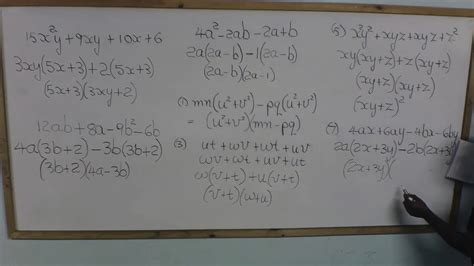 15x²y + 9xy + 10x + 6
3xy(5x+3) + 2(5x+3)
(5x+3)(3xy+2)
12ab + 8a - 9b² - 6b
4a(3b+2) - 3b(3b+2)
(3b+2)(4a-3b)
4a² - 2ab - 2a + b
2a(2a-b) - 1(2a-b)
(2a-b)(2a-1)
(1) mn(u²+v²) - pq(u²+v²)
= (u²+v²)(mn-pq)
(3) ut + wv + wt + uv
wv + wt + uv + ut
w(v+t) + u(v+t)
(v+t)(w+u)
(5) x²y² + xyz + xyz + z²
xy(xy+z) + z(xy+z)
(xy+z)(xy+z)
(xy+z)²
(4) 4ax + 6ay - 4bx - 6by
2a(2x+3y) - 2b(2x+3
(2x+3y)(